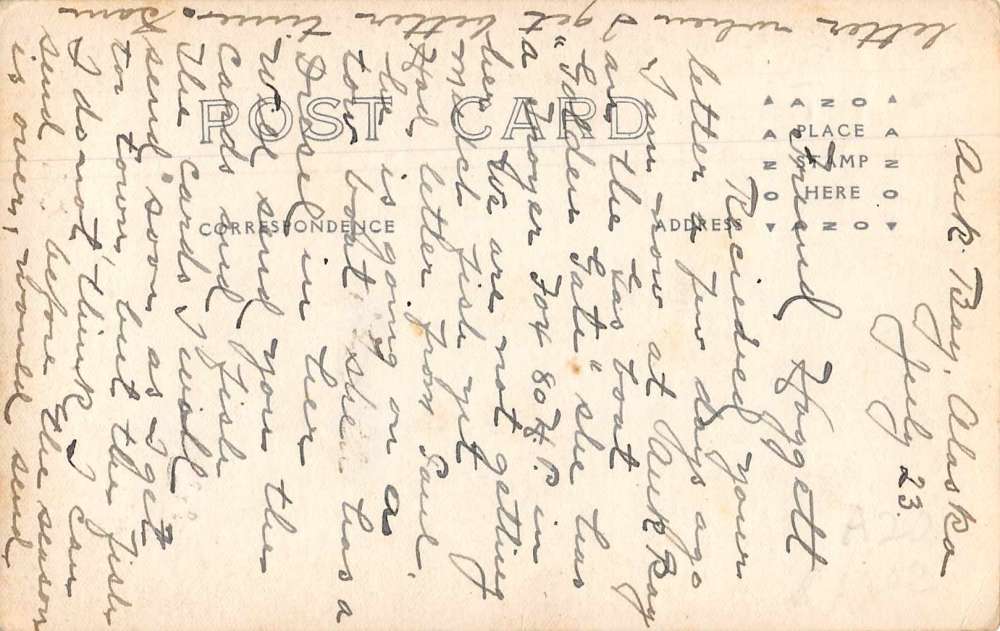 POST CARD
CORRESPONDENCE
ADDRESS
AZO
PLACE
STAMP
HERE
AZO
Auk Bay, Alaska
July 23.
Friend Hoggett
Recieded your
letter a few days ago
I am now at Auk Bay
are the Gas boat
"Golden Gate" she has
a Troyer Fox 80 H.P. in
her We are not getting
Much fish yet
Had letter from Saul.
he is going on a
tow boat, she has a
Diesel in her
Will send you the
Cards and fish
The cards I will
send soon as I get
to town, but the fish
I do not think I can
send before the season
is over, would send
letter when I get better time. Sam